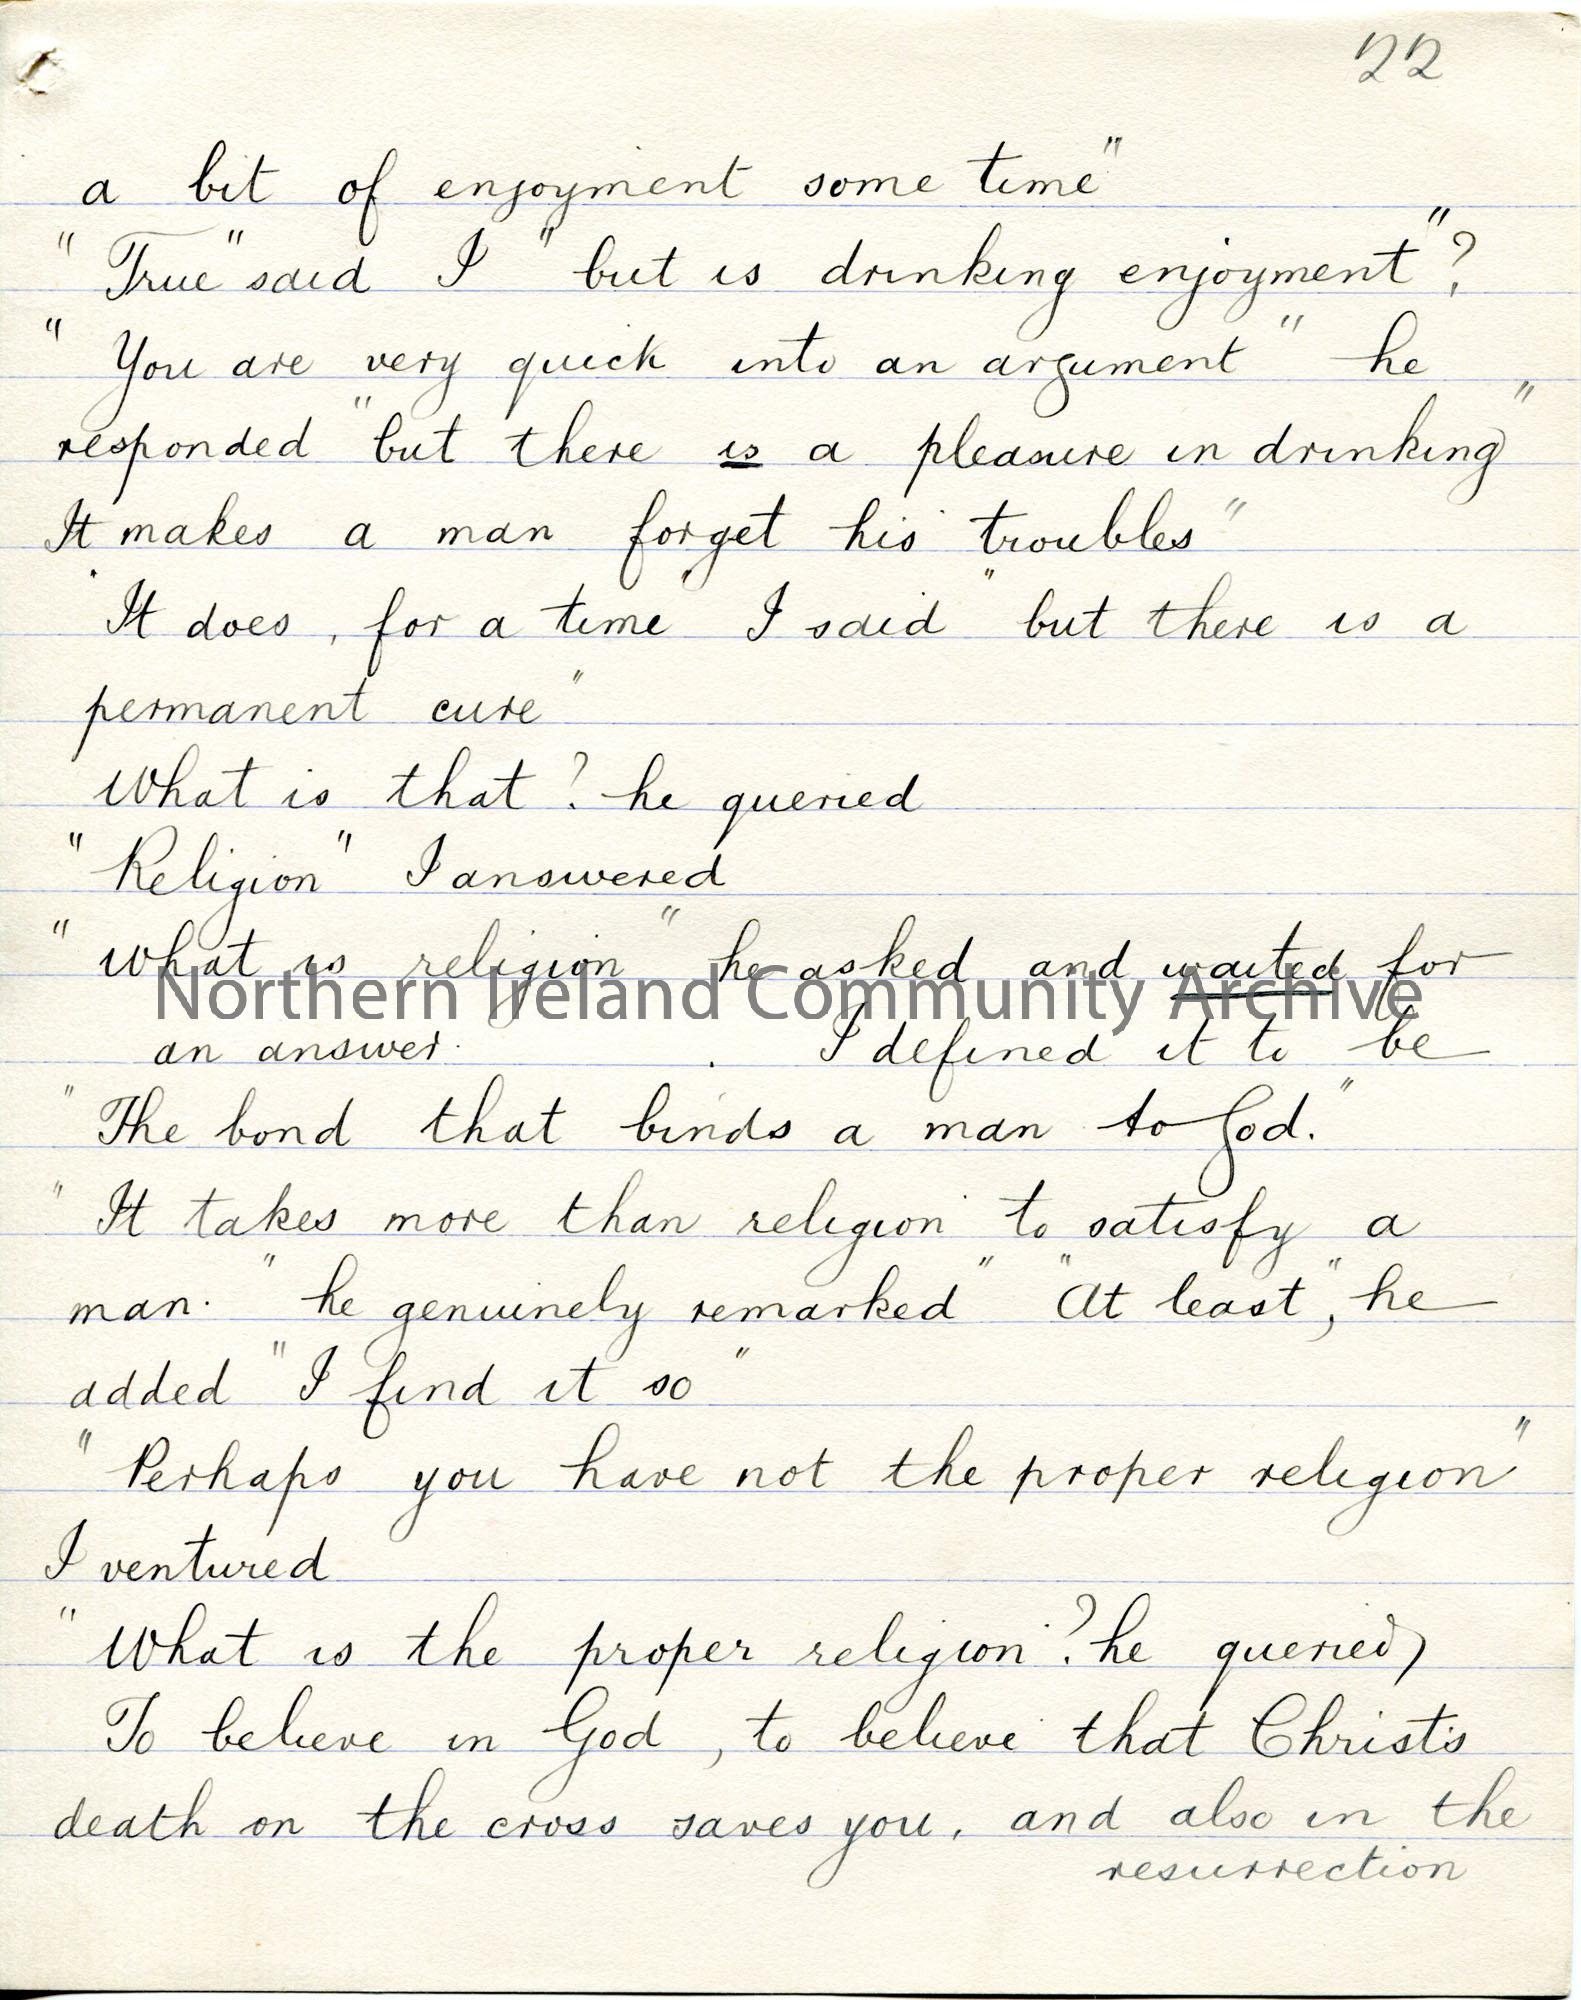 22
a bit of enjoyment some time"
"True" said I "but is drinking enjoyment"?
"You are very quick into an argument" he
responded "but there is a pleasure in drinking"
It makes a man forget his troubles"
"It does, for a time" I said "but there is a
permanent cure"
What is that? he queried
"Religion" I answered
"What is religion" he asked and waited for
Northern Ireland Community Archive
an answer. . I defined it to be
"The bond that binds a man to God."
"It takes more than religion to satisfy a
man." he genuinely remarked" "At least", he
added "I find it so"
"Perhaps you have not the proper religion"
I ventured
"What is the proper religion? he queried)
To believe in God, to believe that Christ's
death on the cross saves you, and also in the
resurrection